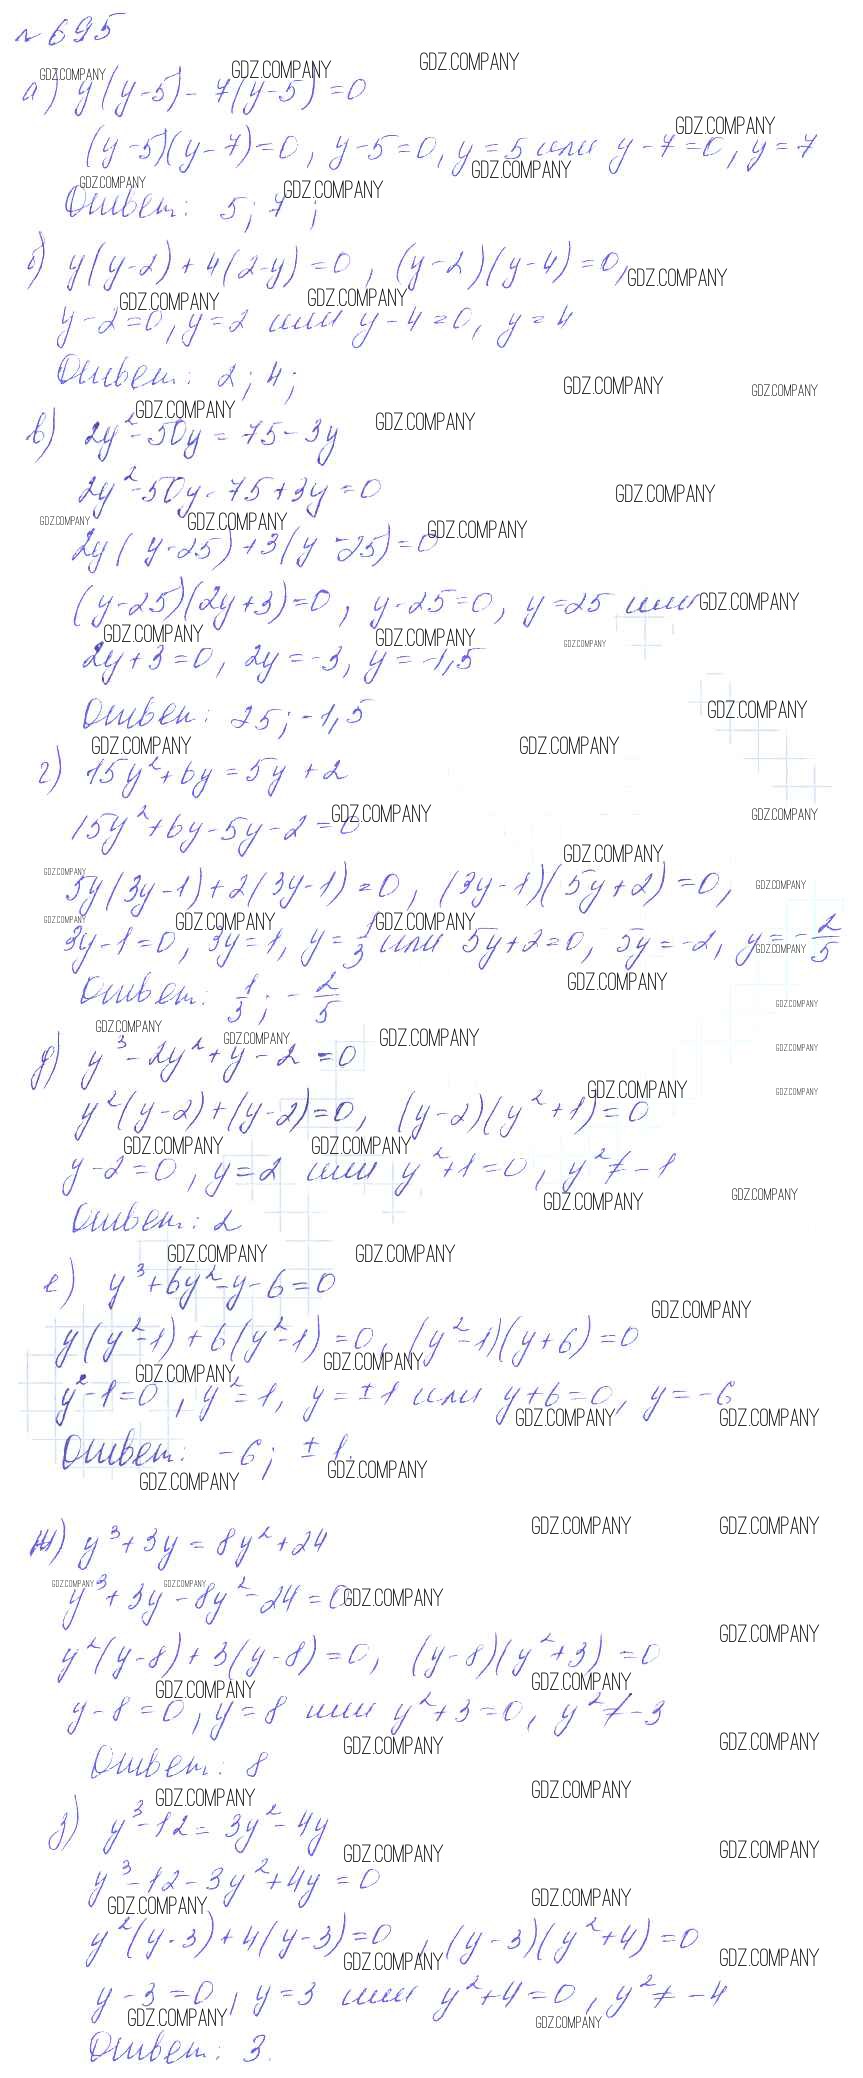 №695
а) y(y-5)-7(y-5)=0
(y-5)(y-7)=0, y-5=0, y=5 или y-7=0, y=7
Ответ: 5; 7;
б) y(y-2)+4(2-y)=0, (y-2)(y-4)=0,
y-2=0, y=2 или y-4=0, y=4
Ответ: 2; 4;
в) 2y²-50y=75-3y
2y²-50y-75+3y=0
2y(y-25)+3(y-25)=0
(y-25)(2y+3)=0, y-25=0, y=25 или
2y+3=0, 2y=-3, y=-1,5
Ответ: 25; -1,5
г) 15y²+6y=5y+2
15y²+6y-5y-2=0
5y(3y-1)+2(3y-1)=0, (3y-1)(5y+2)=0,
3y-1=0, 3y=1, y=1/3 или 5y+2=0, 5y=-2, y=-2/5
Ответ: 1/3; -2/5
д) y³-2y²+y-2=0
y²(y-2)+(y-2)=0, (y-2)(y²+1)=0
y-2=0, y=2 или y²+1=0, y²≠-1
Ответ: 2
е) y³+6y²-y-6=0
y(y²-1)+6(y²-1)=0, (y²-1)(y+6)=0
y²-1=0, y²=1, y=±1 или y+6=0, y=-6
Ответ: -6; ±1.
ж) y³+3y=8y²+24
y³+3y-8y²-24=0
y²(y-8)+3(y-8)=0, (y-8)(y²+3)=0
y-8=0, y=8 или y²+3=0, y²≠-3
Ответ: 8
з) y³-12=3y²-4y
y³-12-3y²+4y=0
y²(y-3)+4(y-3)=0, (y-3)(y²+4)=0
y-3=0, y=3 или y²+4=0, y²≠-4
Ответ: 3.
GDZ.COMPANY